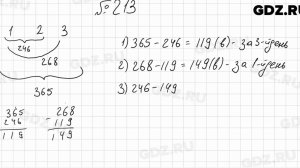 № 213
1 2 3
246
268
365
1) 365 - 246 = 119 (в) - за 3-й день
2) 268 - 119 = 149 (в) - за 1-й день
3) 246 - 149
365
246
119
- 268
119
149
GDZ.RU